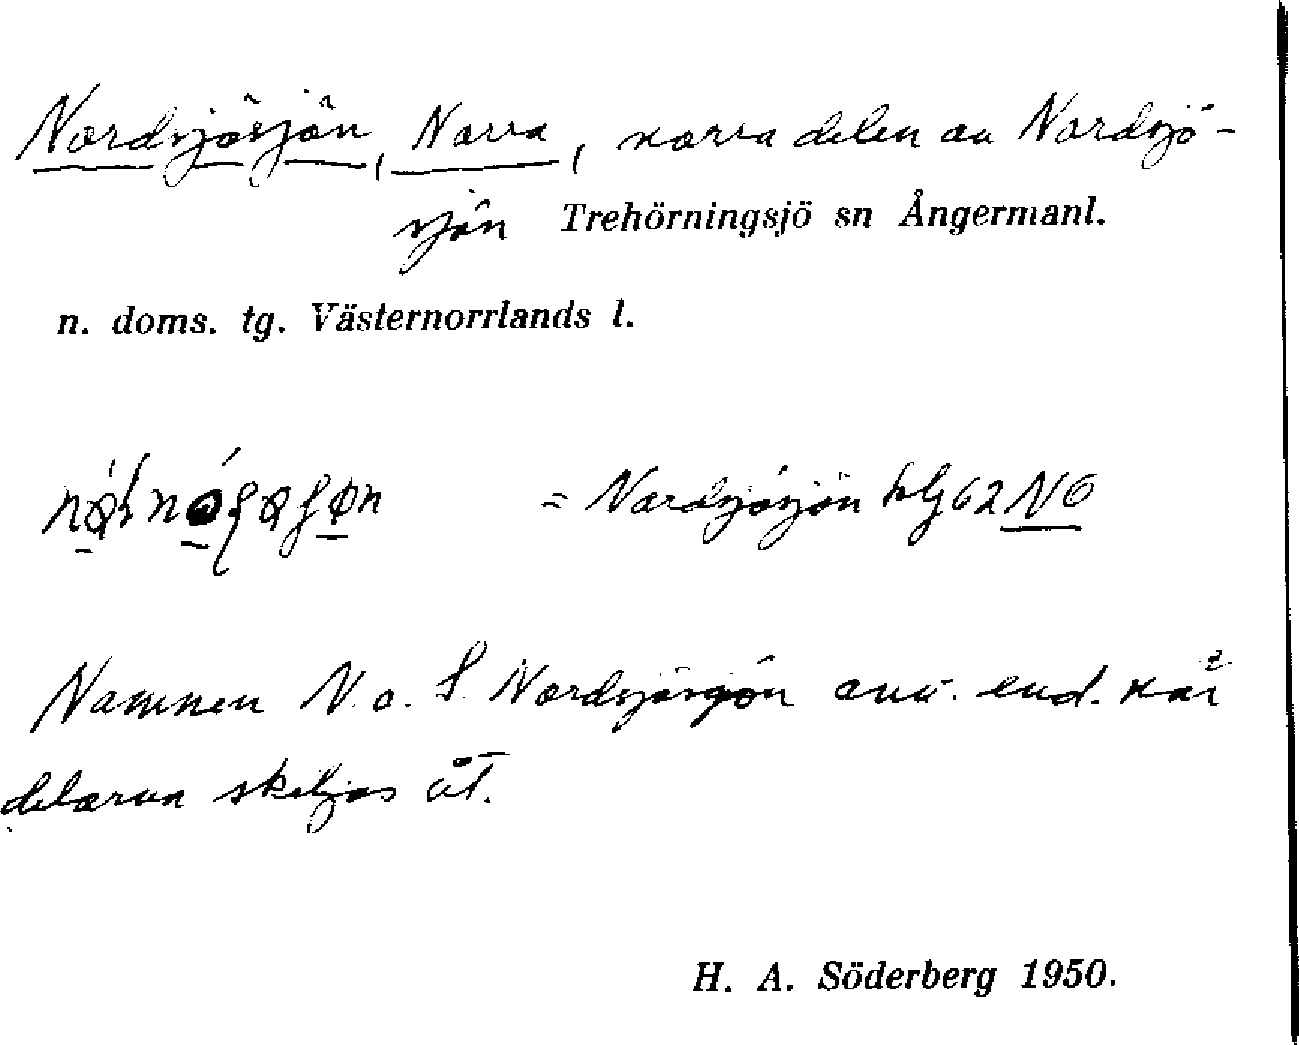 Nordsjösjön, Norra, norra delen av Nordsjö-
sjön Trehörningsjö sn Ångermanl.
n. doms. tg. Västernorrlands l.
= Nordsjösjön hlj 62 NO
Namnen N. o. S. Nordsjösjön anv. end. när
delarna skiljas åt.
H. A. Söderberg 1950.